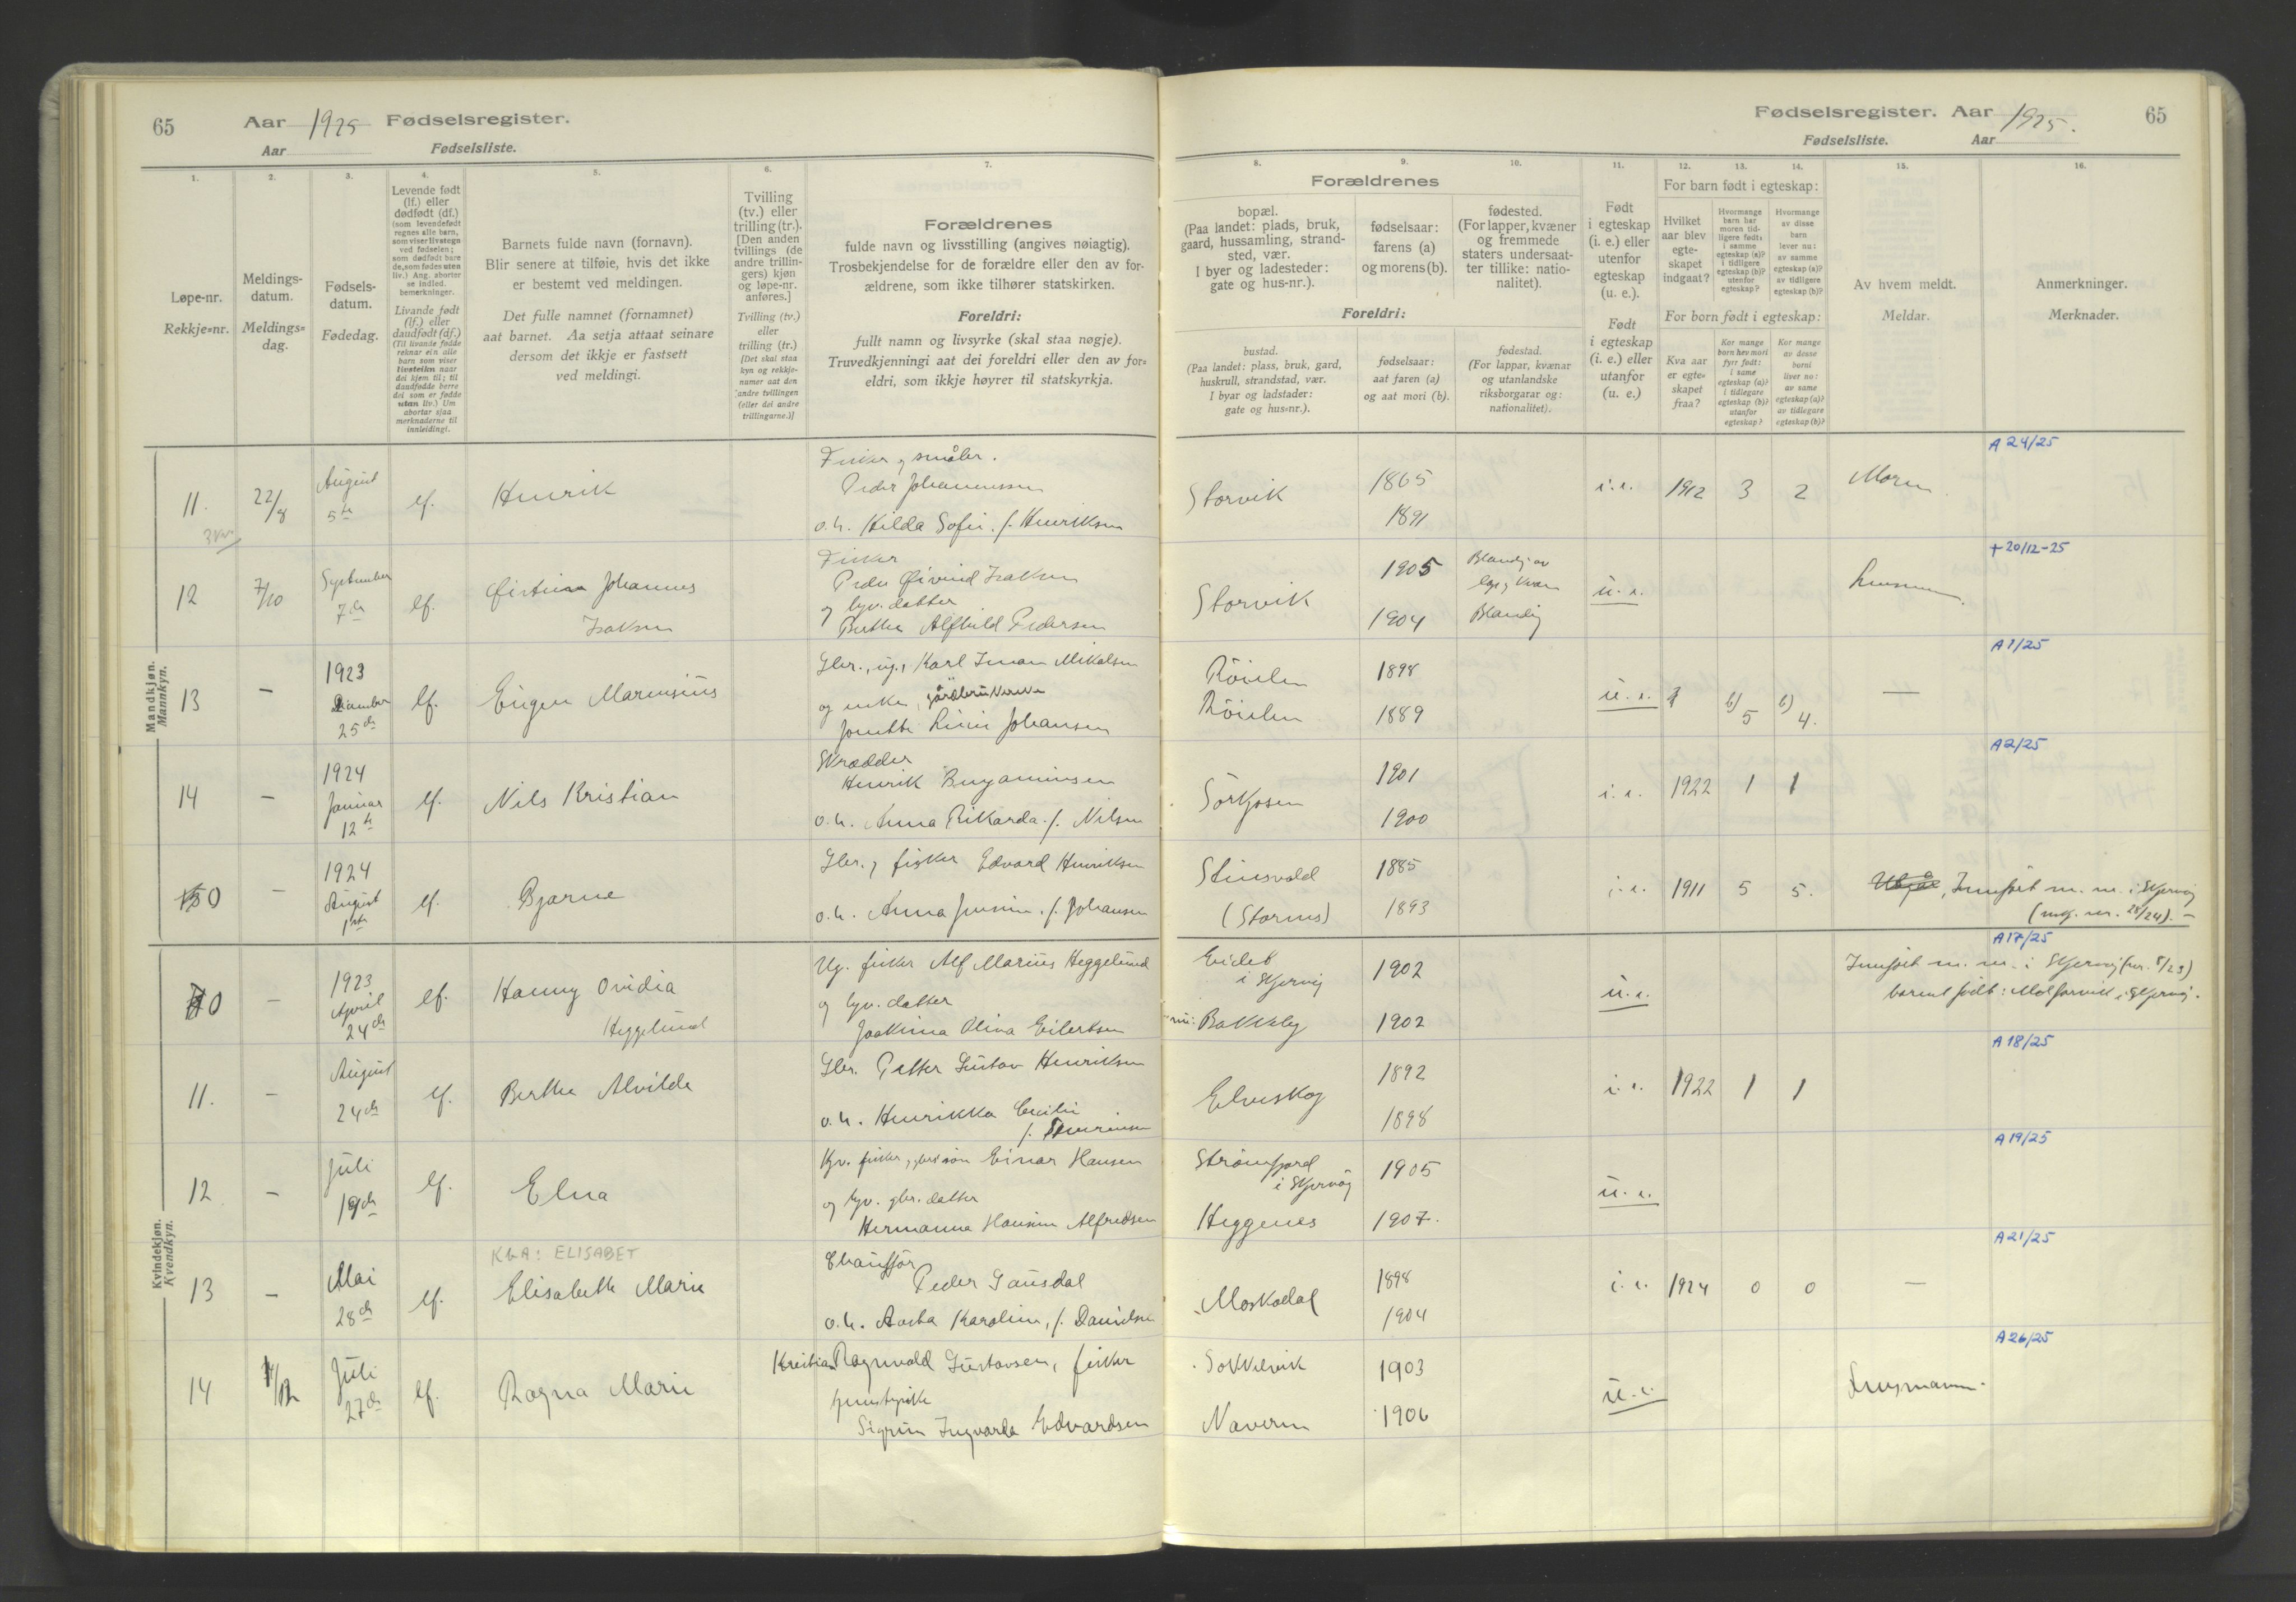 65 Aar 1925 Fødselsregister.
Aar Fødselsliste.
Fødselsregister. Aar 1925. 65
Fødselsliste. Aar
1. 2. 3. 4. 5. 6. 7.
Løpe-nr.
Rekkje=nr.
Meldings-
datum.
Meldings=
dag.
Fødsels-
datum.
Fødedag.
Levende født
(lf.) eller
dødfødt (df.)
(som levendefødt
regnes alle barn,
som viser livstegn
ved fødselen;
som dødfødt bare
de, som fødes uten
liv.) Ang. aborter
se indled.
bemerkninger.
Livande født
(lf.) eller
daudfødt (df.)
(Til livande fødde
reknar ein alle
barn som viser
livsteikn naar
dei kjem til; til
daudfødde berre
dei som er fødde
utan liv.) Um
abortar sjaa
merknaderne til
innleidingi.
Barnets fulde navn (fornavn).
Blir senere at tilføie, hvis det ikke
er bestemt ved meldingen.
Det fulle namnet (fornamnet)
aat barnet. Aa setja attaat seinare
dersom det ikkje er fastsett
ved meldingi.
Tvilling
(tv.) eller
trilling (tr.).
[Den anden
tvillings (de
andre trillin-
gers) kjøn
og løpe-nr.
anføres.]
Tvilling (tv.)
eller
trilling (tr.)
[Det skal staa
kyn og rekkje-
numer aat den
andre tvillingen
(eller dei andre
trillingarne.)]
Forældrenes
fulde navn og livsstilling (angives nøiagtig).
Trosbekjendelse for de forældre eller den av for-
ældrene, som ikke tilhører statskirken.
Foreldri:
fullt namn og livsyrke (skal staa nøgje).
Truvedkjenningi aat dei foreldri eller den av for=
eldri, som ikkje høyrer til statskyrkja.
8. 9. 10. 11. 12. 13. 14. 15. 16.
Forældrenes
bopæl.
(Paa landet: plads, bruk,
gaard, hussamling, strand-
sted, vær.
I byer og ladesteder:
gate og hus-nr.).
fødselsaar:
farens (a)
og morens (b).
fødested.
(For lapper, kvæner
og fremmede
staters undersaat-
ter tillike: natio-
nalitet).
Foreldri:
bustad.
(Paa landet: plass, bruk, gard,
huskrull, strandstad, vær.
I byar og ladstader:
gate og hus=nr.).
fødselsaar:
aat faren (a)
og aat mori (b).
fødestad.
(For lappar, kvænar
og utanlandske
riksborgarar og:
nationalitet).
Født
i egteskap
(i. e.) eller
utenfor
egteskap
(u. e.).
Født
i egteskap
(i. e.) eller
utanfor
(u. e.)
For barn født i egteskap:
Hvilket
aar blev
egte-
skapet
indgaat?
Hvormange
barn har
moren tid-
ligere født:
i samme
egteskap (a)?
i tidligere
egteskap (b)?
utenfor
egteskap?
Hvormange
av disse
barn
lever nu:
av samme
egteskap (a)?
av tidligere
egteskap (b)?
For born født i egteskap:
Kva aar
er egte=
skapet
fraa?
Kor mange
born hev mori
fyrr født:
i same
egteskap (a)?
i tidlegare
egteskap (b)?
utanfor
egteskap?
Kor mange
av desse
borni
liver no:
av same
egteskap (a)?
av tidlegare
egteskap (b)?
Av hvem meldt.
Meldar.
Anmerkninger.
Merknader.
Mandkjøn.
Mannkyn.
A 24/25
11. 22/8 August 5te lf. Henrik
Fisker og småbr.
Peder Johannessen
o. h. Hilda Sofie f. Henriksen
Storvik 1865 1891 i. e. 1912 3 2 Moren
+ 20/12-25
12 7/10 September 7de lf. Johannes
Isaksen
Fisker
Peder Øivind Isaksen
og tjv. datter
Berthe Alfhild Pedersen
Storvik 1905 1904
Blandig u. e.
A 1/25
13 – 1923 25de lf. Eugen Marensius
Gbr., ug., Karl Iman Mikalsen
og enke, gårdbrukerske
Jonette Lovise Johansen
Röielen 1898
Röielen 1889 u. e. b) 5 b) 4. –
A 2/25
14 – 1924 Januar 12te lf. Nils Kristian
Skrædder
Henrik Benjaminsen
o. h. Anna Rikarda f. Nilsen
Sörkjosen 1901 1900 i. e. 1922 1 1
0 – 1924 August 1ste lf. Bjarne
Gbr., fisker Edvard Henriksen
o. h. Anna f. Johansen
Stensvold
(Stornes) 1885 1893 i. e. 1911 5 5. Innført m. nr. i Skjervøy
28/24). –
Kvindekjøn.
Kvendkyn.
A 17/25
0 – 1923 April 24de lf. Hanny Ovidia
Heggelund
Ug. fisker Alf Marius Heggelund
og tjv. datter
Joakima Oliva Eilertsen
Eidet
i Skjervøy 1902
Bakkeby 1902 u. e.
Innført m. nr. i Skjervøy (nr. 5/23)
barnet født: i Skjervøy.
A 18/25
11. – August 24de lf. Berthe Alvilde
Gbr. Petter Gustav Henriksen
o. h. Henrikka Cecilie
Elveskog 1892 1898 i. e. 1922 1 1
A 19/25
12 – Juli 19de lf. Elna
Einar Hansen
og tjv. gbr. datter
Hermanna Alfredsen
Strömfjord
i Skjervöy 1905
Heggenes 1907. u. e.
A 21/25
KbA: ELISABET
13 – Mai 28de lf. Elisabeth Marie
Chauffør
Peder Gausdal
o. h. Aasta Karoline, f. Danielsen
Moskodal 1898 1904 i. e. 1924 0 0 –
A 26/25
14 Juli 27de lf. Ragna Marie
Kristian Ragnvald Gustavsen, fisker
Sigrun Ingvarda Edvardsen
Sokkelvik 1903
Naveren 1906 u. e.